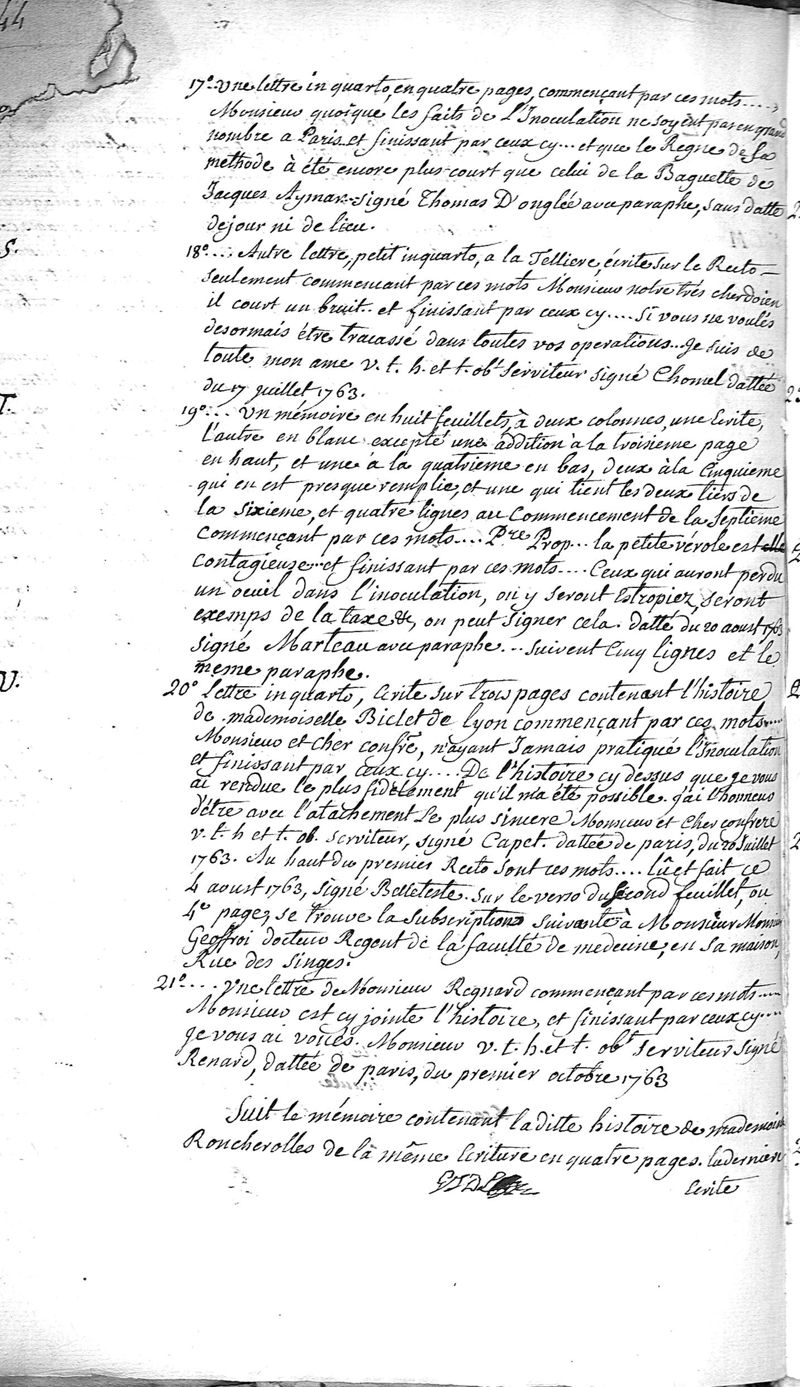 44
17º... Une lettre in quarto, en quatre pages, commençant par ces mots.....
Monsieur quoique les faits de L'Inoculation ne soyent pas en grand
nombre a Paris et finissant par ceux cy... et que le Regne de sa
methode à été encore plus court que celui de la Baguette de
Jacques Aymar. signé Thomas D'onglée avec paraphe, sans datte
de jour ni de lieu.
S.
18º.... Autre lettre, petit inquarto, a la Telliere, écrite sur le Recto
seulement commencant par ces mots Monsieur notre trés cher doien
il court un bruit.. et finissant par ceux cy.... si vous ne voulés
desormais étre tracassé dans toutes vos operations... Je suis de
toute mon ame v. t. h. et t. obt. serviteur signé Chomel dattée
du 17 juillet 1763.
T.
19º.... Un mémoire en huit feuillets, à deux colonnes, une Ecrite,
l'autre en blanc excepté une addition à la troisieme page
en haut, et une à la quatrieme en bas, deux à la Cinquieme
qui en est presque remplie, et une qui tient les deux tiers de
la sixieme, et quatre lignes au Commencement de la septieme
Commençant par ces mots.... Pre Prop... la petite vérole est elle
Contagieuse.. et finissant par ces mots.... Ceux qui auront perdu
un oeuil dans l'inoculation, ou y seront Estropiez, seront
exemps de la taxe &, on peut signer cela. datté du 20 aoust 1763
signé Marteau avec paraphe... suivent Cinq lignes et le
meme paraphe.
V.
20º Lettre in quarto, Ecrite sur trois pages contenant l'histoire
de mademoiselle Biclet de Lyon commençant par ces mots.....
Monsieur et Cher confre, n'ayant Jamais pratiqué l'Inoculation
et finissant par ceux cy.... De l'histoire cy dessus que je vous
ai rendue le plus fidelement qu'il m'a été possible. j'ai l'honneur
d'étre avec l'atachement Le plus sincere Monsieur et Cher confrere
v. t. h et t. ob. serviteur, signé Capet. dattée de paris, du 20 Juillet
1763. Au haut du premier Recto sont ces mots.... lû et fait ce
4 aoust 1763, signé Belleteste. sur le verso du second feuillet, ou
4e page, se trouve la subscription suivante à Monsieur Monsieur
Geoffroi docteur Regent de la faculté de medecine, en sa maison,
Rue des Singes.
21º.... Une lettre de Monsieur Regnard commençant par ces mots....
Monsieur est cy jointe l'histoire, et finissant par ceux cy....
je vous ai voüés. Monsieur v. t. h. et t. obt serviteur signé
Renard, dattée de paris, du premier octobre 1763
Suit le mémoire contenant laditte histoire de mademoise
Roncherolles de la même Ecriture en quatre pages. la derniere
Ecrite